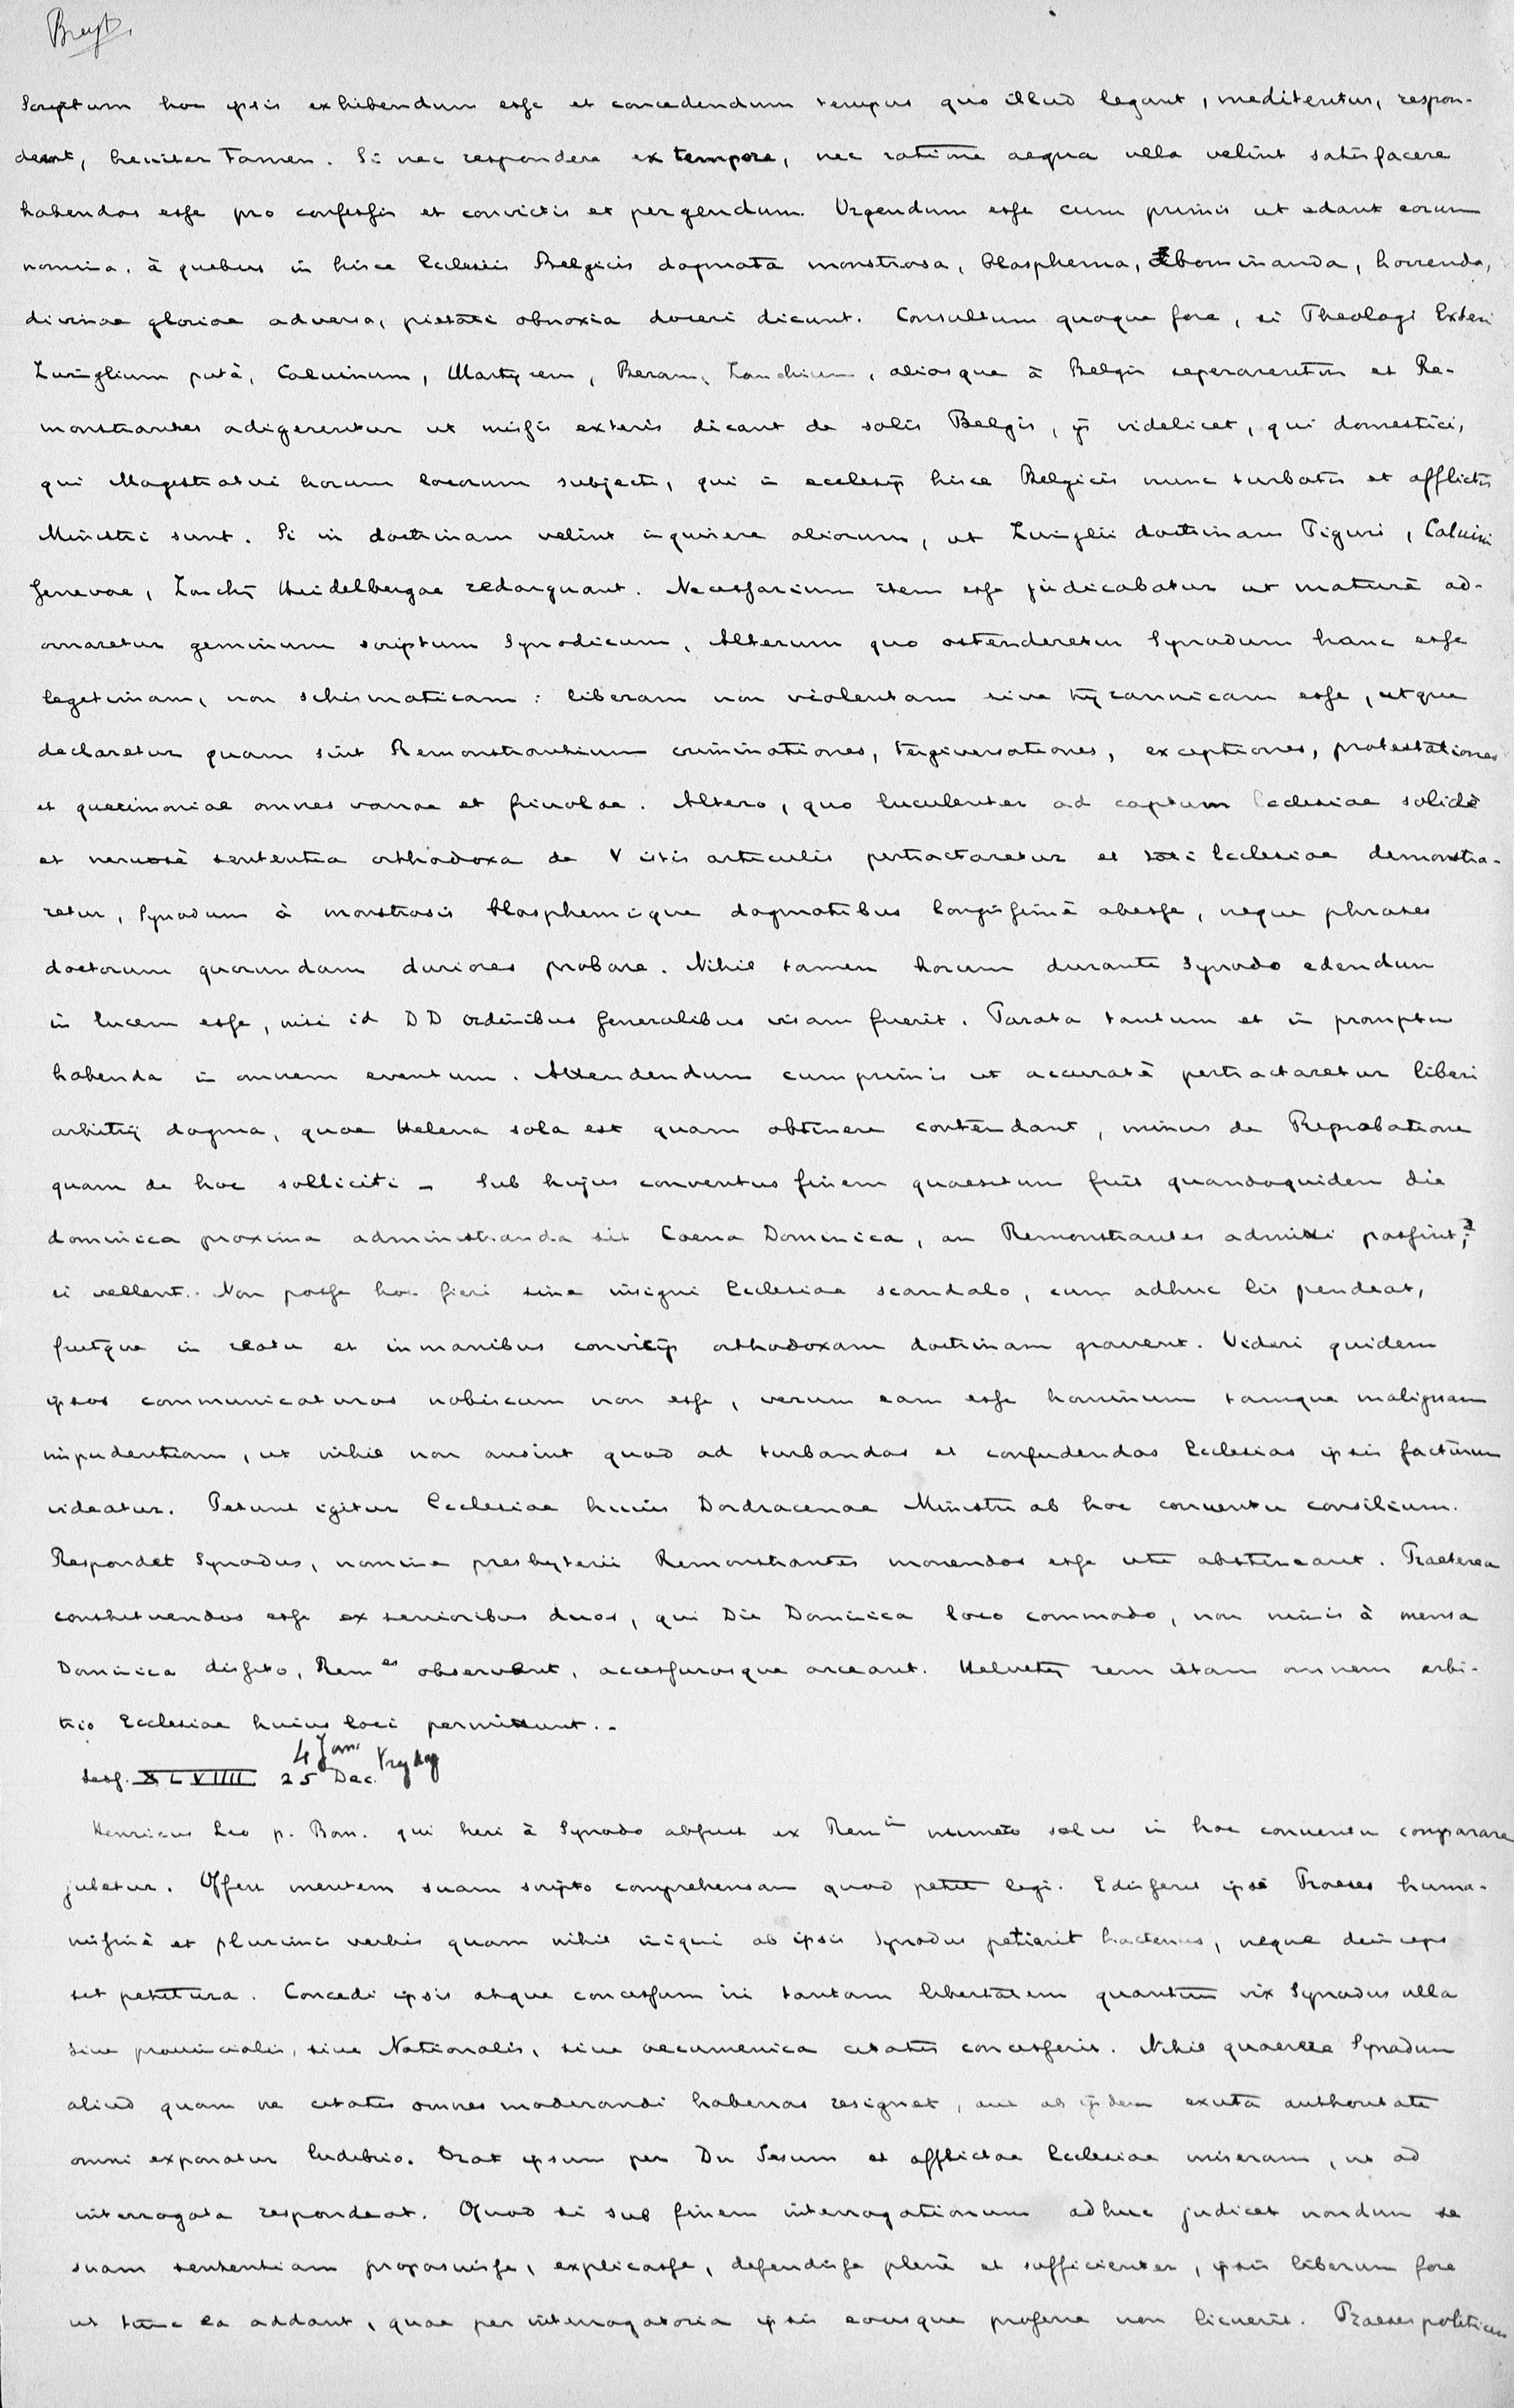 Breyt.
Scriptum hoc ipsis exhibendum esse et concedendum tempus quo illud legant, meditentur, respon-
deant, breviter tamen. Si nec respondere ex tempore, nec ratione aequa ulla velint satisfacere
habendos esse pro confessis et convictis et pergendum. Urgendum esse cum primis ut edant eorum
nomina, à quibus in hisce Ecclesiis Belgicis dogmata monstrosa, blasphema, abominanda, horrenda,
divinae gloriae adversa, pietati obnoxia doceri dicunt. Consultum quoque fore, si Theologi Exteri
Zwinglium putà, Calvinum, Martyrem, Bezam, Zanchium, aliosque à Belgis separarentur et Re-
monstrantes adigerentur ut missis exteris dicant de solis Belgis, ijs videlicet, qui domestici,
qui Magistratui horum locorum subjecti, qui in ecclesijs hisce Belgicis nunc turbatis et afflictis
Ministri sunt. Si in doctrinam velint inquirere aliorum, ut Zwinglii doctrinam Tiguri, Calvini
Genevae, Zanchij Heidelbergae redarguant. Necessarium item esse judicabatur ut maturè ad-
ornaretur geminum scriptum Synodicum, Alterum quo ostenderetur Synodum hanc esse
legitimam, non schismaticam: liberam non violentam sive tyrannicam esse, utque
declaretur quam sint Remonstrantium criminationes, tergiversationes, exceptiones, protestationes
et querimoniae omnes vanae et frivolae. Altero, quo luculenter ad captum Ecclesiae solidè
et nervosè sententia orthodoxa de V istis articulis pertractaretur et toti Ecclesiae demonstra-
retur, Synodum à monstrosis blasphemisque dogmatibus longissimè abesse, neque phrases
doctorum quorundam duriores probare. Nihil tamen horum durante Synodo edendum
in lucem esse, nisi id DD Ordinibus Generalibus visum fuerit. Parata tantum et in promptu
habenda in omnem eventum. Attendendum cumprimis ut accuratè pertractaretur liberi
arbitrij dogma, quae Helena sola est quam obtinere contendant, minus de Reprobatione
quam de hoc solliciti - Sub hujus conventus finem quaesitum fuit quandoquidem die
dominica proxima administranda sit Coena Dominica, an Remonstrantes admitti possint,?
si vellent. Non posse hoc fieri sine insigni Ecclesiae scandalo, cum adhuc lis pendeat,
sintque in reatu et inmanibus convitijs orthodoxam doctrinam gravent. Videri quidem
ipsos communicaturos nobiscum non esse, verum eam esse hominum tamque malignam
impudentiam, ut nihil non ausint quod ad turbandas et confudendas Ecclesias ipsis facturum
videatur. Petunt igitur Ecclesiae huius Dordracenae Ministri ab hoc conventu consilium.
Respondet Synodus, nomine presbyterii Remonstrantes monendos esse uti abstineant. Praeterea
constituendos esse ex senioribus duos, qui Die Dominica loco commodo, non nimis à mensa
Dominica dissito, Rem es observent, accessurosque arceant. Helvetij rem istam omnem arbi-
trio Ecclesiae huius loci permittunt. -
4 Jan. Vrydag
Sess. XLVIIII 25 Dec.
Henricus Leo p. Bom. qui heri à Synodo abfuit ex Rem in numero solus in hoc conventu comparare
jubetur. Offert mentem suam scripto comprehensam quod petit legi. Edisserit ipsi Praeses huma-
nissimè et plurimis verbis quam nihil iniqui ab ipsis Synodus petierit hactenus, neque deinceps
sit petitura. Concedi ipsis atque concessum iri tantam libertatem quantum vix Synodus ulla
sive provincialis, sive Nationalis, sive oecumenica citatis concesserit. Nihil quaerere Synodum
aliud quam ne citatis omnes moderandi habenas resignet, aut ab ijsdem exuta authoritate
omni exponatur ludibrio. Orat ipsum per Dn Jesum et afflictae Ecclesiae miseram, ut ad
interrogata respondeat. Quod si sub finem interrogationum adhuc judicet nondum se
suam sententiam proposuisse, explicasse, defendisse plenè et sufficienter, ipsis liberum fore
ut tunc ea addant, quae per interrogatoria ipsis eousque proferre non licuerit. Praeses politicus